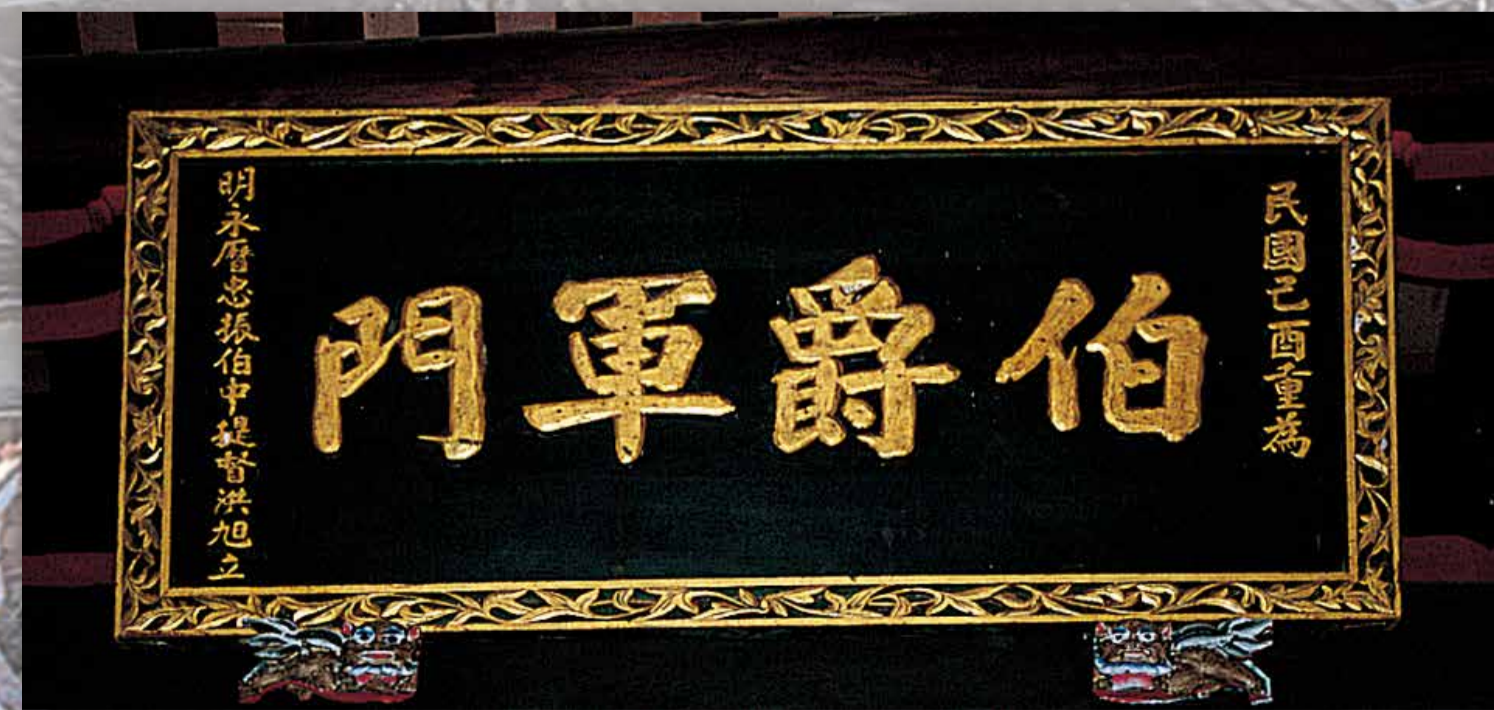 民國己酉重為
伯爵軍門
明永曆忠振伯中提督洪旭立